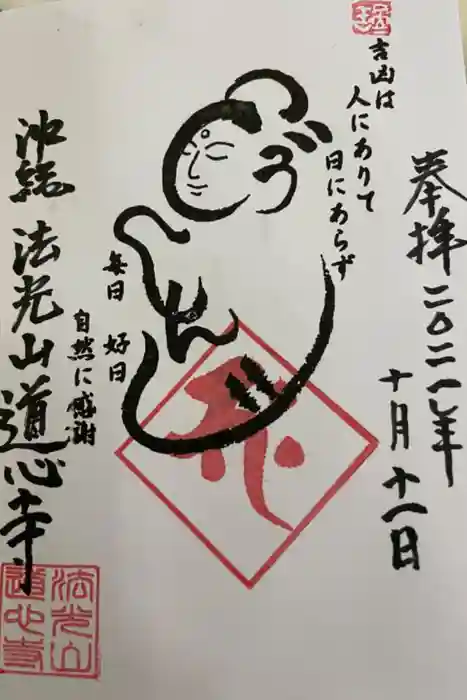 奉拝 二〇二一年
十月十一日
吉凶は
人にありて
日にあらず
毎日 好日
自然に感謝
沖縄 法光山 道心寺
法光山
道心寺